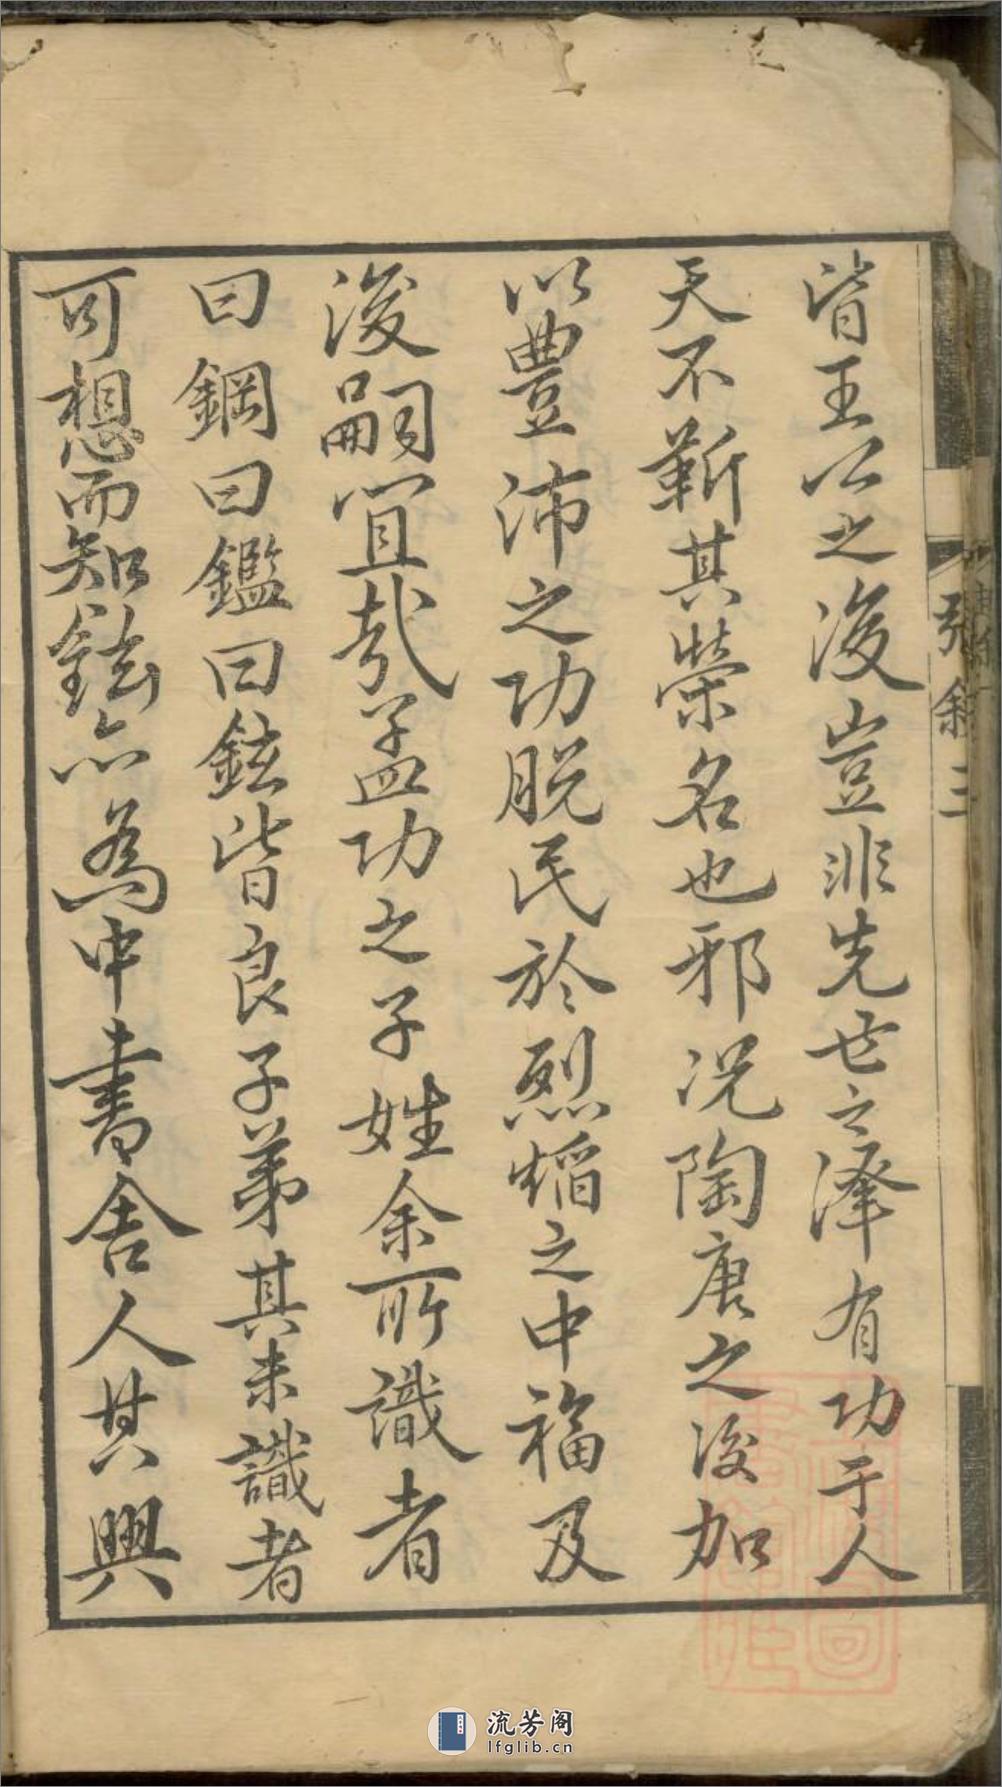 皆王公之後豈非先世之澤有功于人
天不靳其榮名也邪况陶唐之後加
以豐沛之功脱民於烈熖之中福及
後嗣宜哉孟功之子姓余所識者
曰鋼曰鑑曰鉉皆良子弟其未識者
可想而知鉉亦為中書舍人其興
張叙 三
流芳阁
lfglib.cn